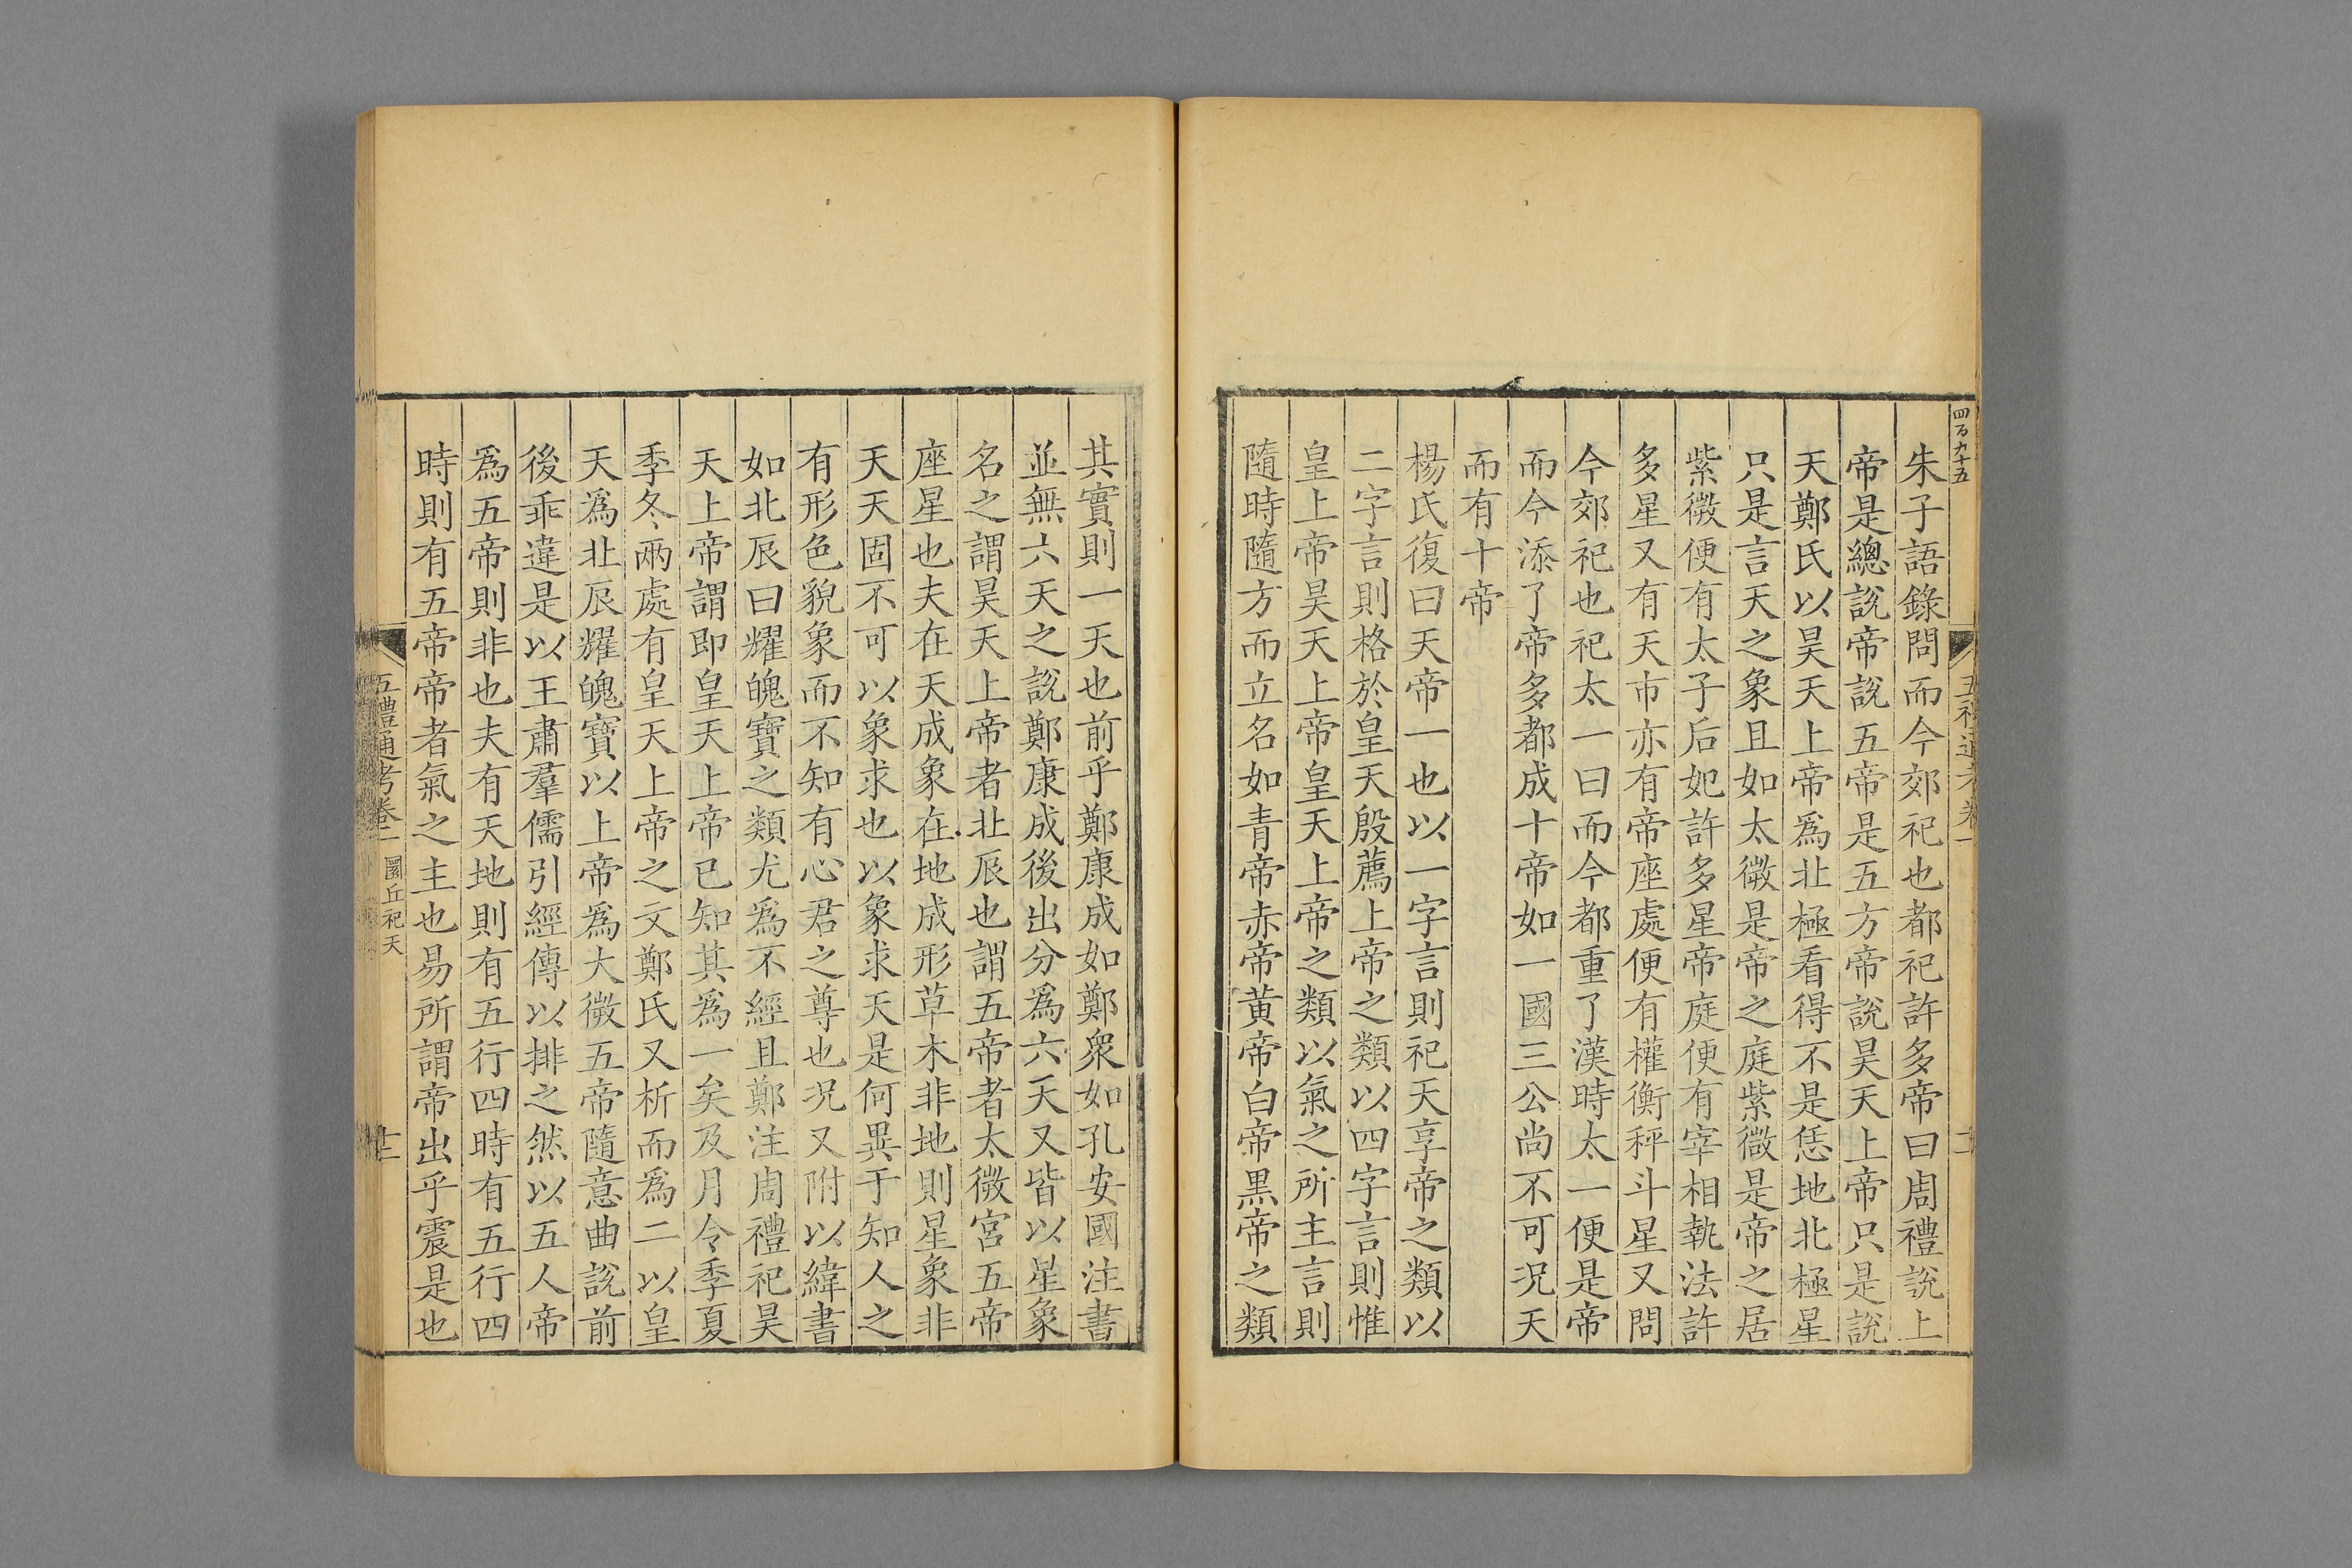 四百九十五
五禮通考卷一
十一
朱子語錄問而今郊祀也都祀許多帝曰周禮說上
帝是總說帝說五帝是五方帝說昊天上帝只是說
天鄭氏以昊天上帝爲北極看得不是恁地北極星
只是言天之象且如太微是帝之庭紫微是帝之居
紫微便有太子后妃許多星帝庭便有宰相執法許
多星又有天市亦有帝座處便有權衡秤斗星又問
今郊祀也祀太一曰而今都重了漢時太一便是帝
而今添了帝多都成十帝如一國三公尚不可况天
而有十帝
楊氏復曰天帝一也以一字言則祀天享帝之類以
二字言則格於皇天殷薦上帝之類以四字言則惟
皇上帝昊天上帝皇天上帝之類以氣之所主言則
隨時隨方而立名如青帝赤帝黃帝白帝黑帝之類
其實則一天也前乎鄭康成如鄭衆如孔安國注書
並無六天之說鄭康成後出分爲六天又皆以星象
名之謂昊天上帝者北辰也謂五帝者太微宮五帝
座星也夫在天成象在地成形草木非地則星象非
天天固不可以象求也以象求天是何異于知人之
有形色貌象而不知有心君之尊也况又附以緯書
如北辰曰耀魄寶之類尤爲不經且鄭注周禮祀昊
天上帝謂即皇天上帝已知其爲一矣及月令季夏
季冬兩處有皇天上帝之文鄭氏又析而爲二以皇
天爲北辰耀魄寶以上帝爲大微五帝隨意曲說前
後乖違是以王肅羣儒引經傳以排之然以五人帝
爲五帝則非也夫有天地則有五行四時有五行四
時則有五帝帝者氣之主也易所謂帝出乎震是也
五禮通考卷一
圜丘祀天
十二